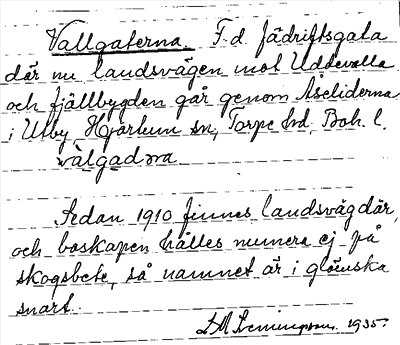 Vallgaterna. F.d. fädriftsgata
där nu landsvägen mot Uddevalla
och fjällbygden går genom Åseliderna
i Utby, Hjärtum sn, Torpe hd, Boh. l.
vàlgadɷra
Sedan 1910 finnes landsväg där,
och boskapen hålles numera ej på
skogsbete, så namnet är i glömska
snart.
1935.